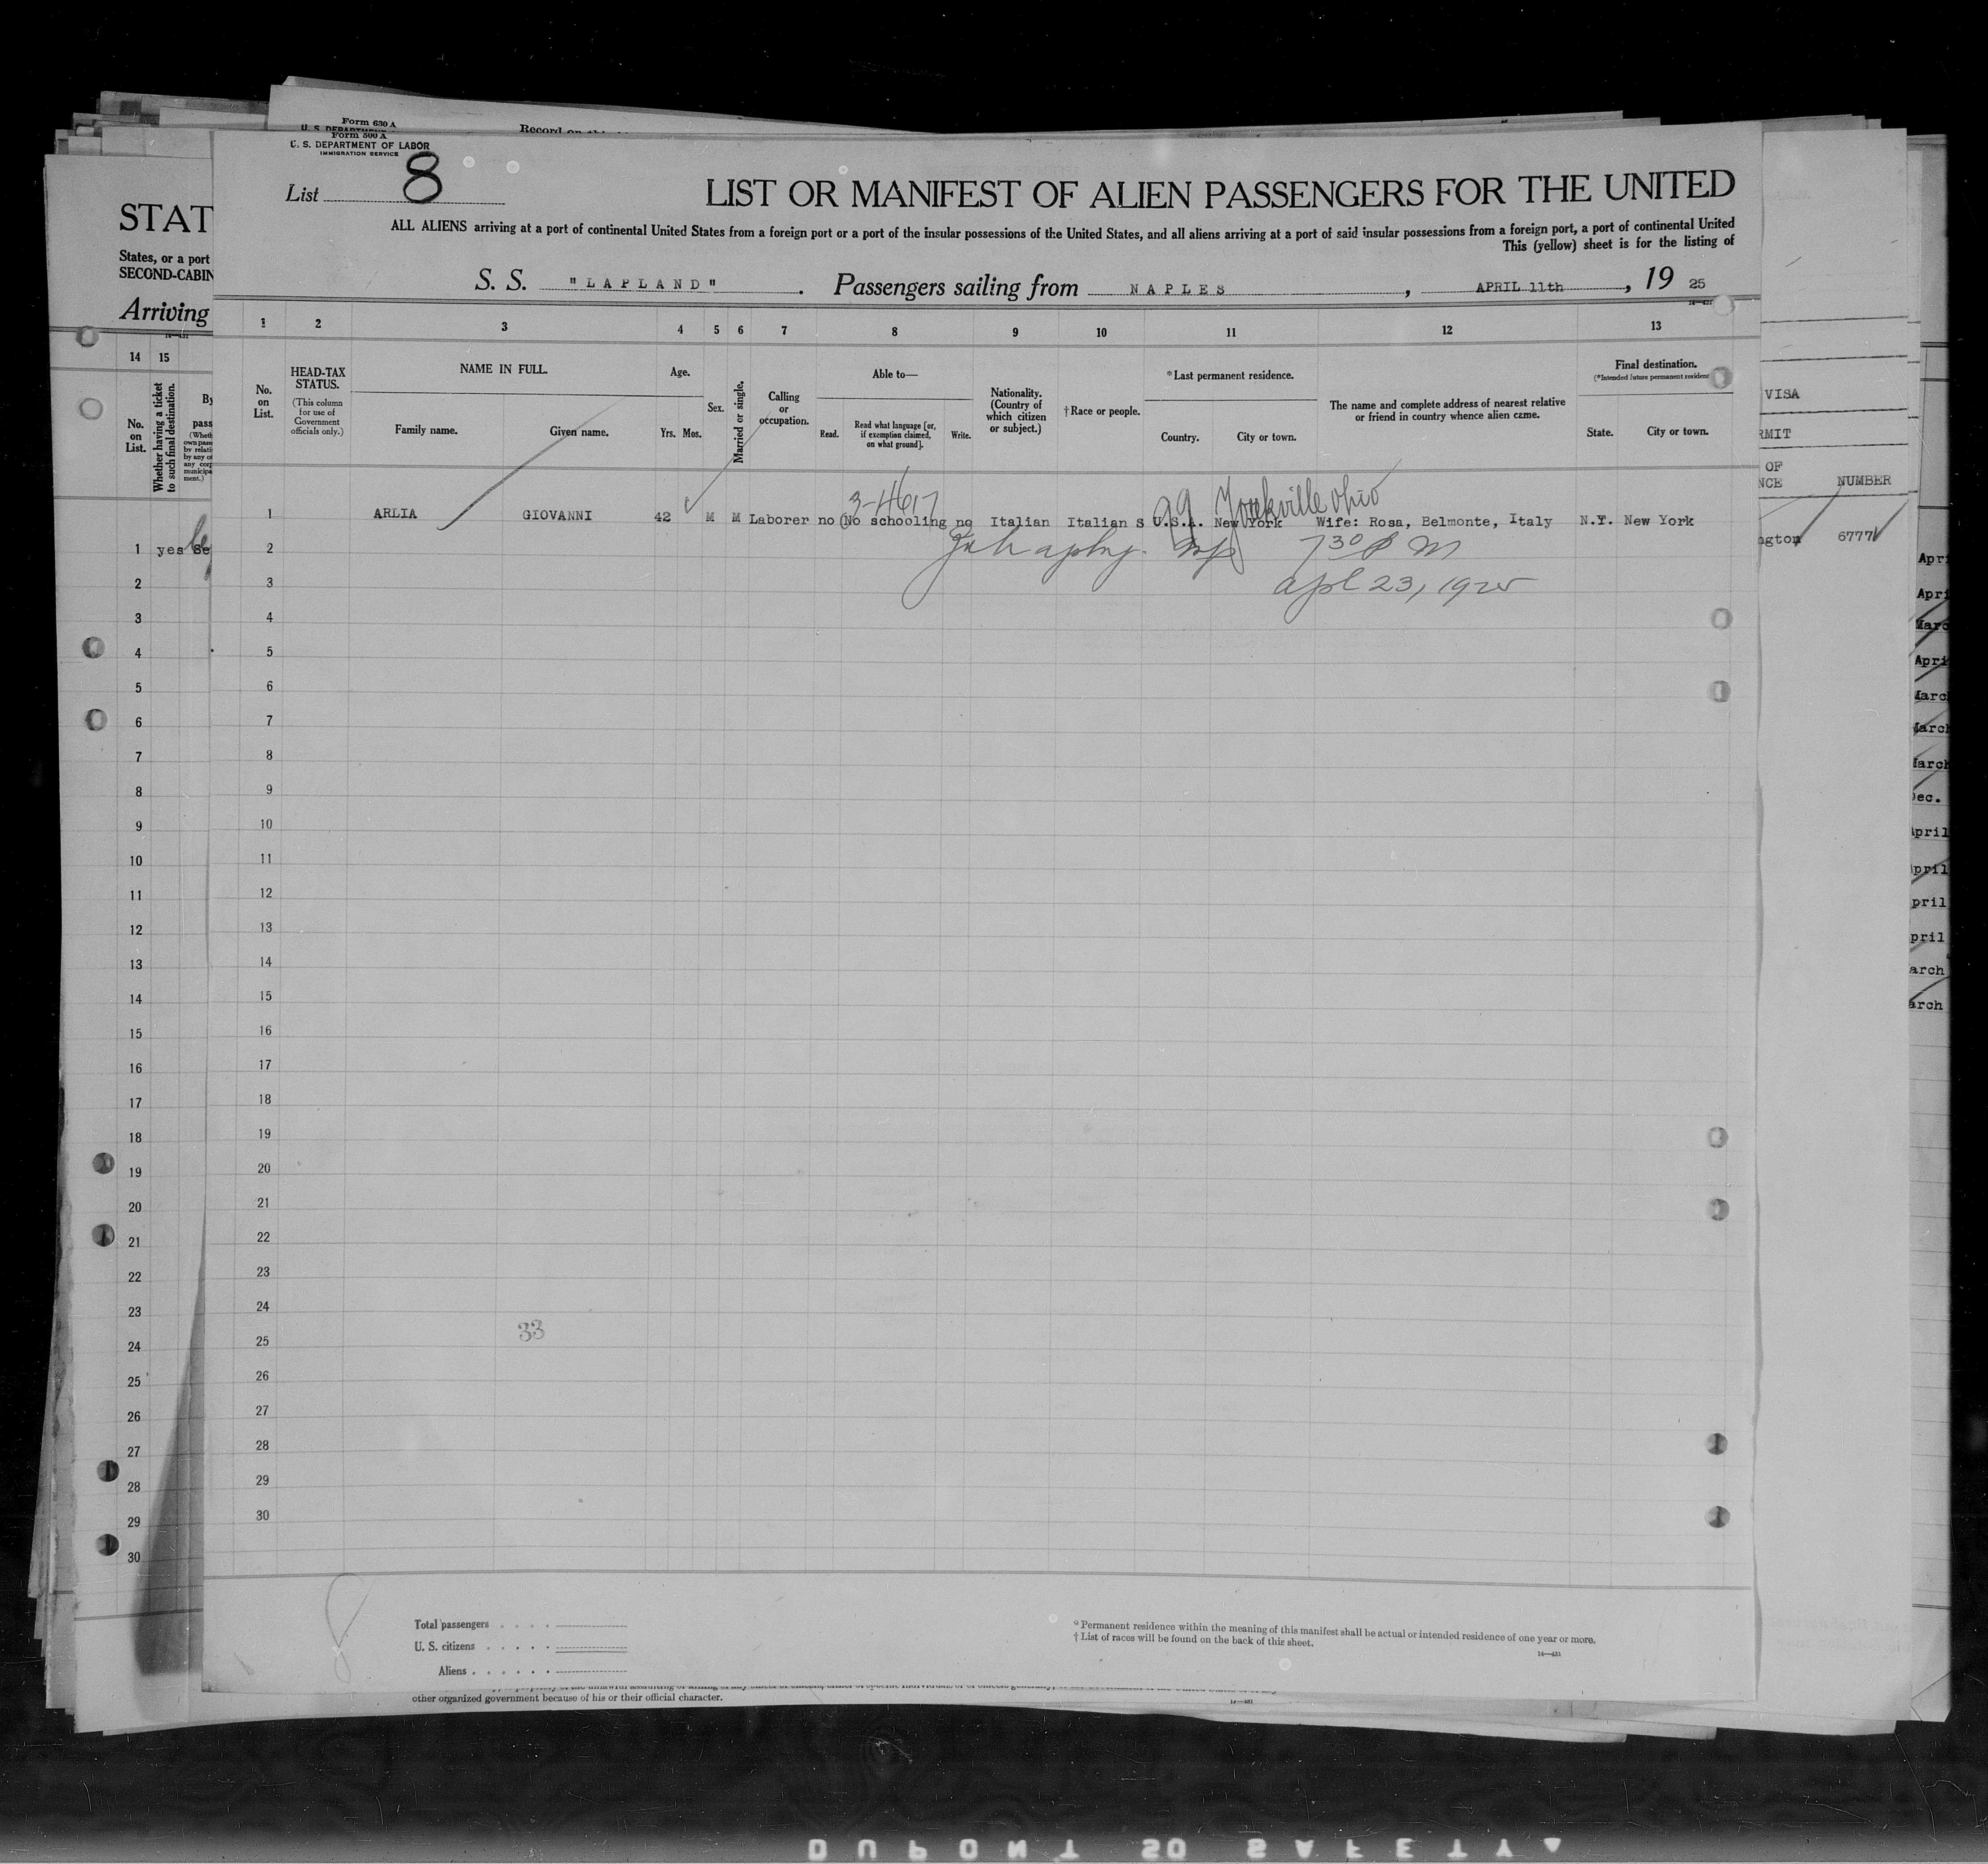 Form 630 A
U. S. DEPARTMENT
Record on
Form 500 A
U. S. DEPARTMENT OF LABOR
IMMIGRATION SERVICE
List 8
LIST OR MANIFEST OF ALIEN PASSENGERS FOR THE UNITED
ALL ALIENS arriving at a port of continental United States from a foreign port or a port of the insular possessions of the United States, and all aliens arriving at a port of said insular possessions from a foreign port, a port of continental United
This (yellow) sheet is for the listing of
S. S. "LAPLAND". Passengers sailing from NAPLES, APRIL 11th, 19 25
14—431
1 2 3 4 5 6 7 8 9 10 11 12 13
No. on List.
HEAD-TAX STATUS.
(This column for use of Government officials only.)
NAME IN FULL.
Family name. Given name.
Age.
Yrs. Mos.
Sex.
Married or single.
Calling or occupation.
Able to—
Read. Read what language [or, if exemption claimed, on what ground]. Write.
Nationality. (Country of which citizen or subject.)
†Race or people.
*Last permanent residence.
Country. City or town.
The name and complete address of nearest relative or friend in country whence alien came.
Final destination.
(*Intended future permanent residence
State. City or town.
3-14617 99 Yorkville Ohio
1 ARLIA GIOVANNI 42 M M Laborer no No schooling no Italian Italian S U.S.A. New York Wife: Rosa, Belmonte, Italy N.Y. New York
2 7 30 P M
3 Apl 23, 1925
4
5
6
7
8
9
10
11
12
13
14
15
16
17
18
19
20
21
22
23
24
33
25
26
27
28
29
30
Total passengers
U. S. citizens
Aliens
*Permanent residence within the meaning of this manifest shall be actual or intended residence of one year or more.
†List of races will be found on the back of this sheet.
14—431
other organized government because of his or their official character.
14—431
STAT
States, or a port
SECOND-CABIN
Arriving
14 15
No. on List.
Whether having a ticket to such final destination.
By
pass
1 yes Se
2
3
4
5
6
7
8
9
10
11
12
13
14
15
16
17
18
19
20
21
22
23
24
25
26
27
28
29
30
VISA
RMIT
OF
NCE NUMBER
ngton 6777
Apri
Apri
Marc
Apri
March
March
March
Dec.
April
April
April
April
March
March
DUPONT SO SAFETY